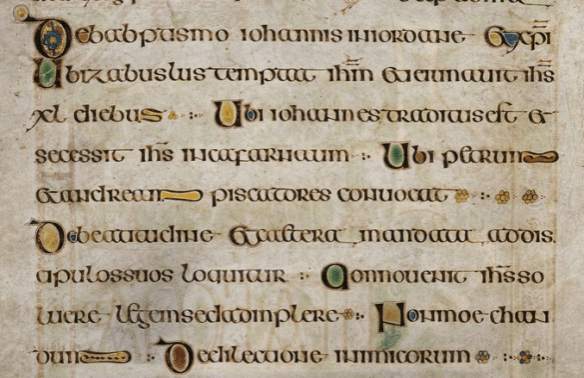 De babtismo iohannis iniordane Et xpi
Ubi zabuslus temptat ihm Et ieiunauit ihs
xl diebus Ubi iohannes traditus est et
secessit ihs in cafarnaum Ubi petrum
Et andream piscatores conuocat
De beatitudine Et caetera mandata ad dis
cipulos suos loquitur Q on nouenit ihs so
luere legem sed adimplere Non moechan
dum De dilectione inimicorum